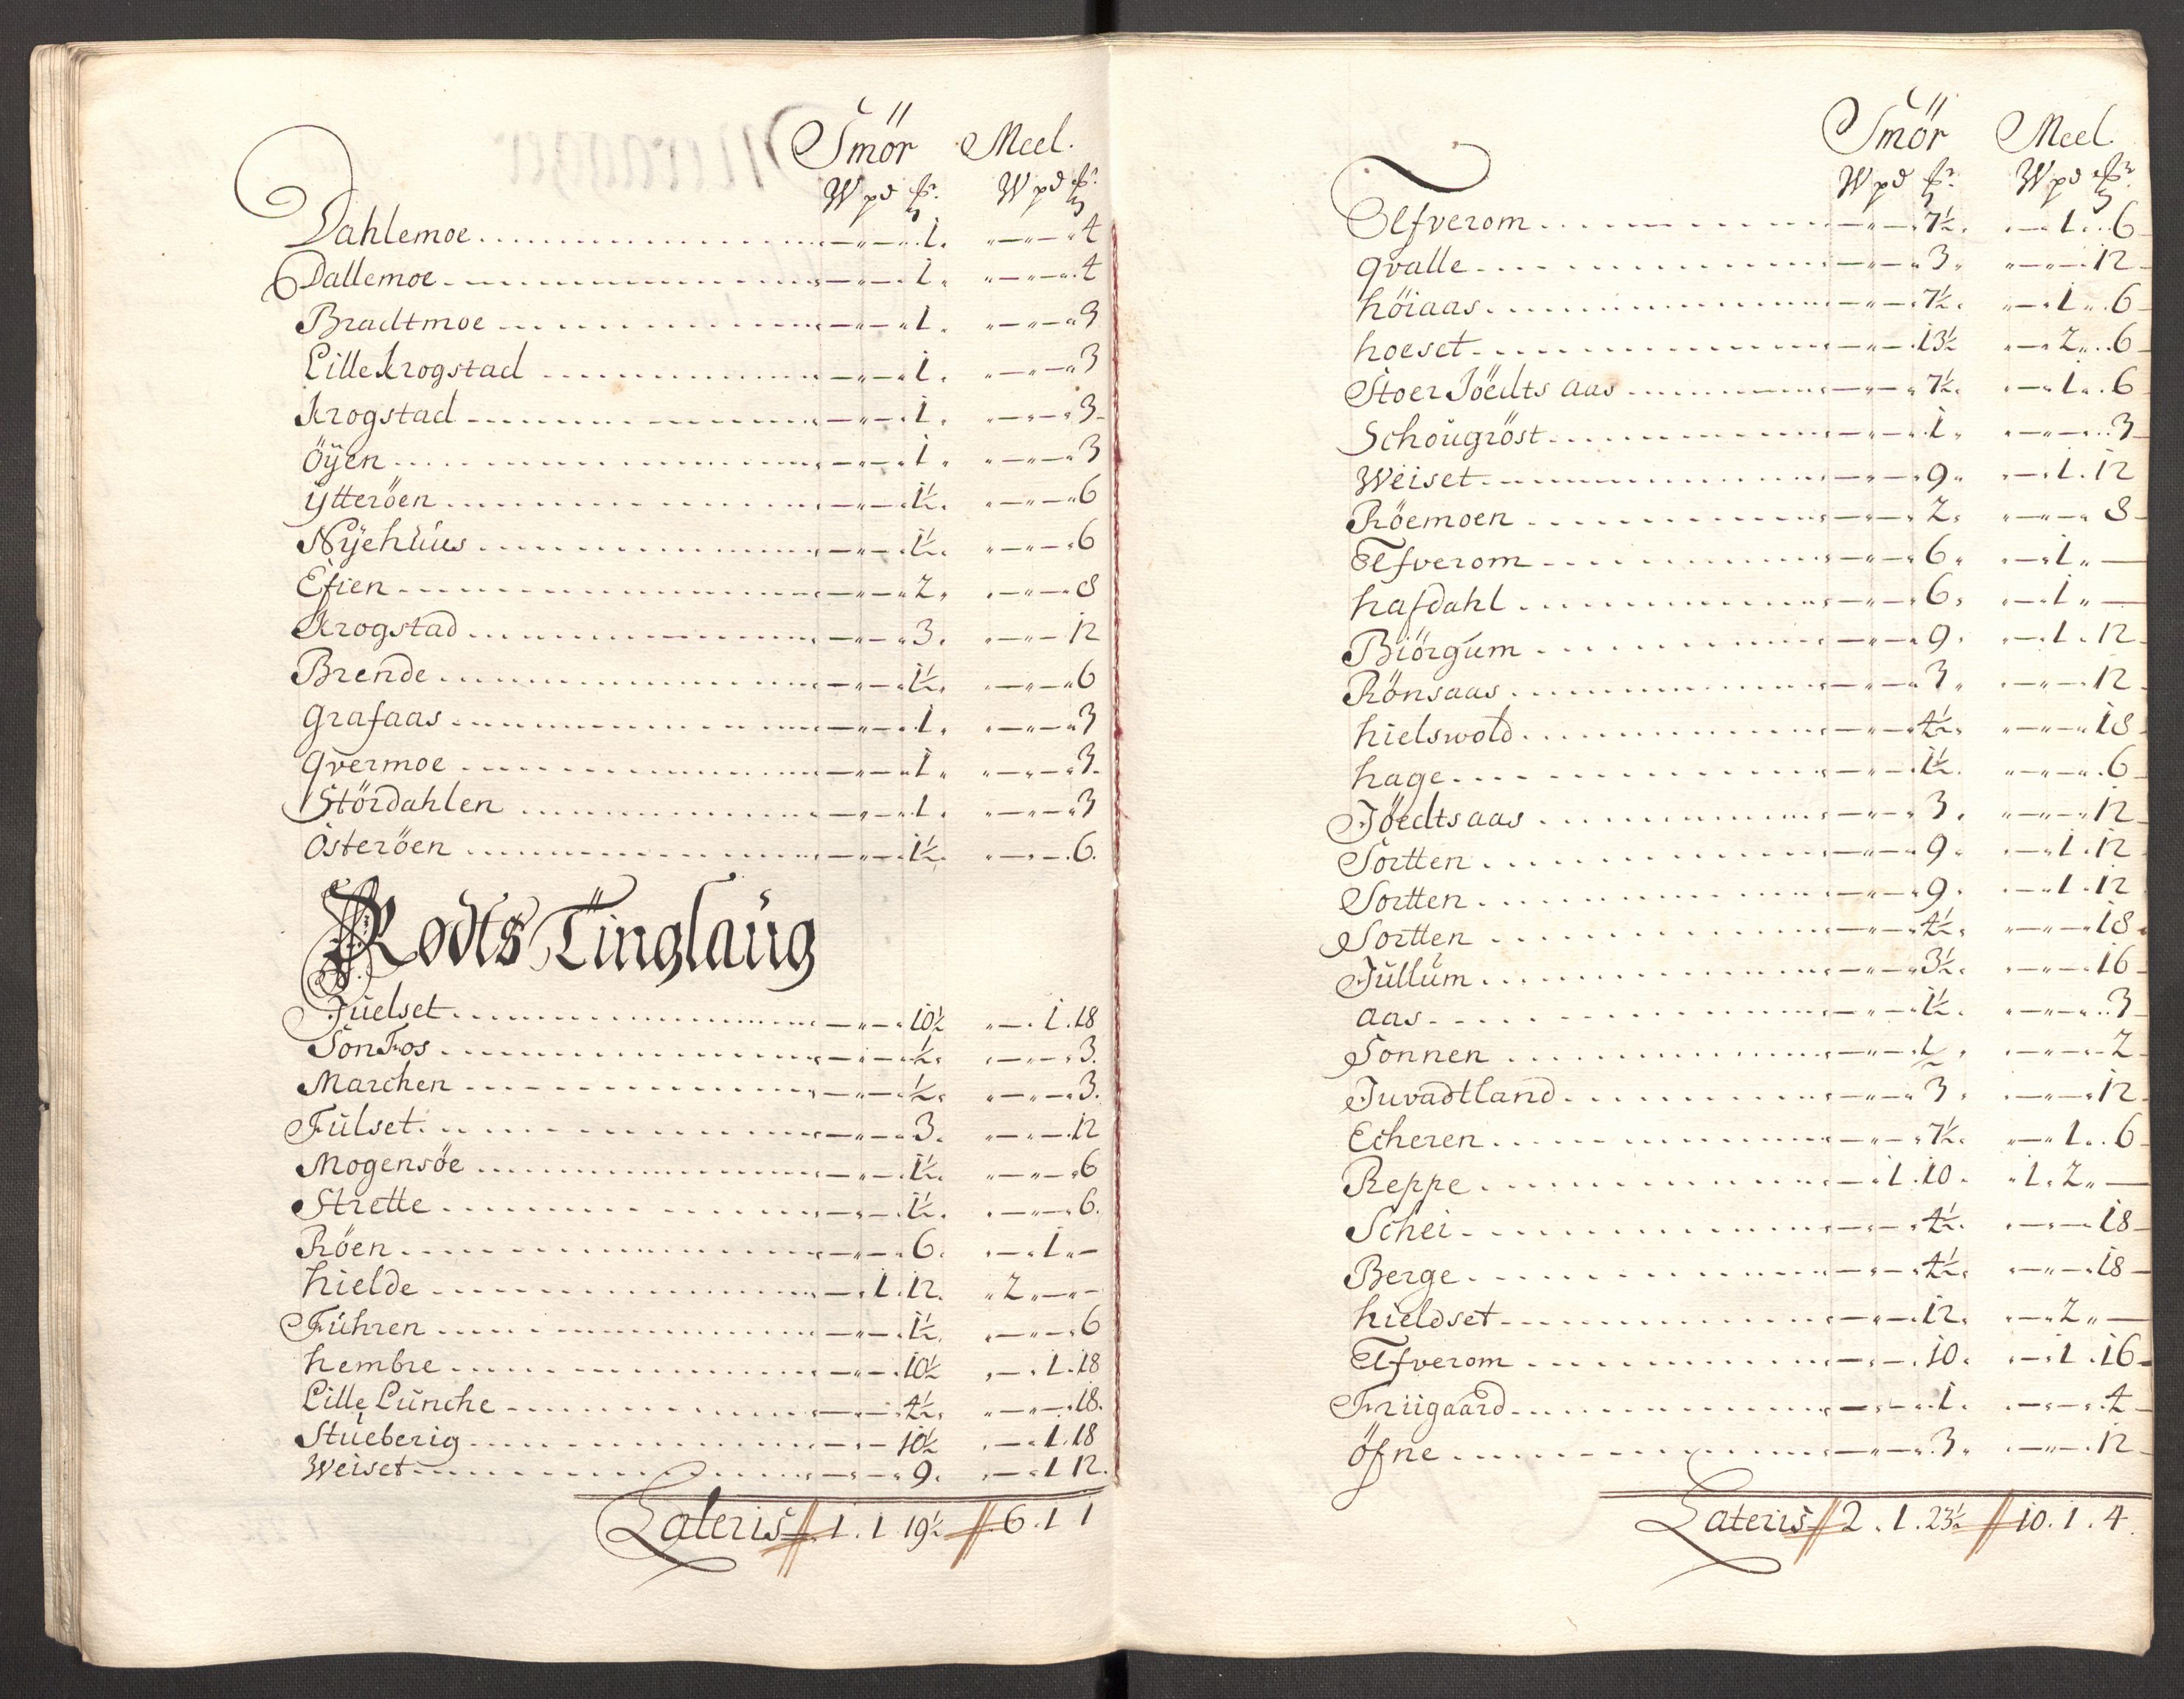 Smör Meel.
W pd ℔r. W pd ℔r.
Dahlemoe 1. 4
Dallemoe 1. 4
Bradtmoe 1. 3
Lille krogstad 1. 3
krogstad 1. 3
öÿen 1. 3
ÿtteröen 1½. 6
Nÿehuus 1½. 6
Efien 2. 8
krogstad 3. 12
Brende 1½. 6
grafaas 1. 3
qvermoe 1. 3.
Stördahlen 1. 3
österöen 1½. 6.
Rødts Tinglaug
Juelset 10½ 1.18
Sonfos ½. 3.
Marchen ½. 3.
Fulset 3. 12
Mogensöe 1½. 6
Strette 1½. 6.
Röen 6. 1.
hielde 1.12. 2
Fuhren 1½. 6
hembre 10½ 1.18
Lille Lunche 4½. 18.
Stueberig 10½ 1.18
Weiset 9. 1 12.
Lateris 1.1 19½ 6.1 1
Smör Meel
W pd ℔r. W pd ℔r.
Elfverom 7½. 1. 6
qvalle 3. 12
höiaas 7½. 1. 6
hoeset 13½ 2. 6
Stoer Jöedts aas 7½. 1. 6
Schougröst 1. 3
Weiset 9. 1.12
Röemoen 2. 8
Elfverom 6. 1.
hafdahl 6. 1
Biörgum 9. 1.12
Rönsaas 3. 12
hielswold 4½. 18
hage 1½. 6
Jöedtsaas 3. 12
Sortten 9. 1.12
Sortten 9. 1.12
Sortten 4½. 18
Jullum 3½. 16
aas 1½. 3
Sonnen ½. 2
Juvadtland 3. 12
Echeren 7½. 1. 6
Reppe 1.10. 1.2.
Schei 4½. 18
Berge 4½. 18
hieldset 12. 2
Elfverom 10. 1.16
Friigaard 1. 4
öfne 3. 12
Lateris 2.1.23½ 10.1.4.